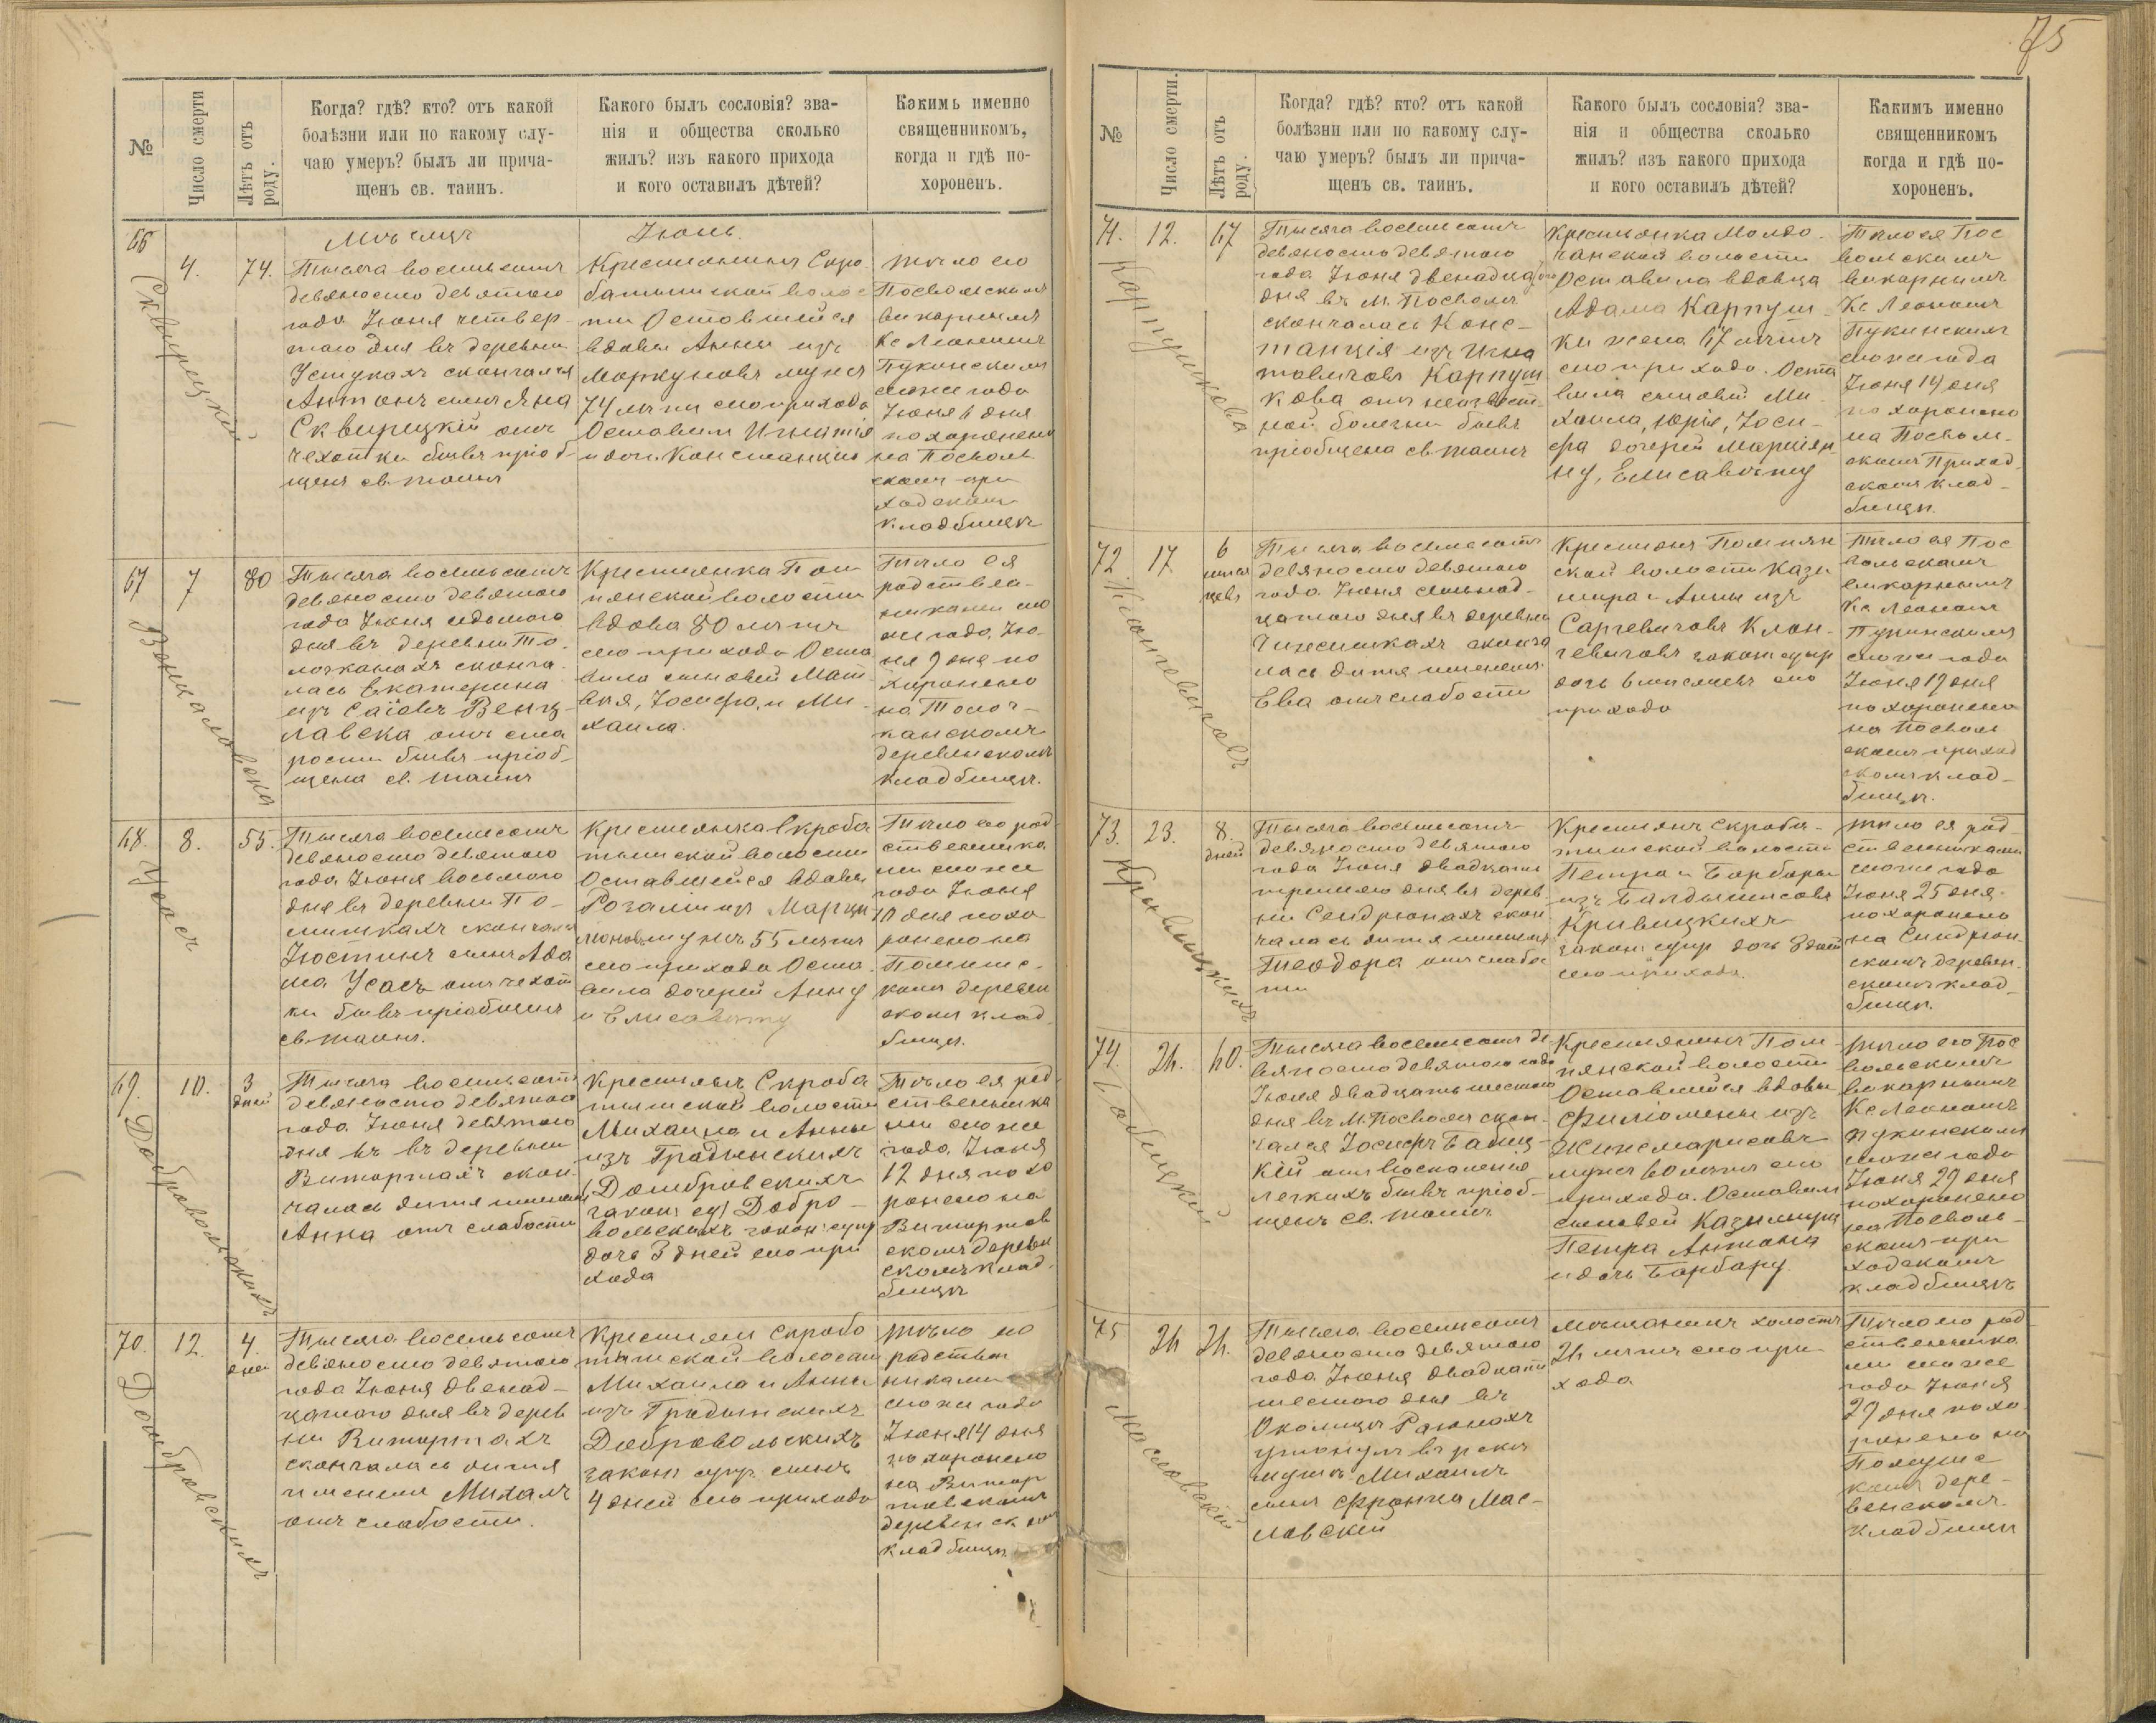 75
№
Число смерти
Лѣтъ отъ роду.
Когда? гдѣ? кто? отъ какой
болѣзни или по какому слу-
чаю умеръ? былъ ли прича-
щенъ св. таинъ.
Какого былъ сословія? зва-
нія и общества сколько
жилъ? изъ какого прихода
и кого оставилъ дѣтей?
Какимъ именно
священникомъ,
когда и гдѣ по-
хороненъ.
Мѣсяцъ Іюнь.
66
4.
74.
Сквирецкій
Тысяча восемьсотъ
девяносто девятого
года Іюня четвер-
того дня въ деревни
Устукахъ скончался
Антонъ сынъ Яна
Сквирецкій отъ
чехотки бывъ пріоб-
щенъ св. таинъ
Крестьянинъ Скро
батишской волос
ти Оставшейся
вдовы Анны изъ
Моркуновъ мужъ
74 лѣтъ сего прихода
Оставилъ Игнатія
и доч. Констанцію
тѣло его
Посвольскимъ
викарнымъ
Кс Леономъ
Пукинскимъ
сего же года
Іюня 6 дня
похоронено
на Посволь
скомъ при
ходскомъ
кладбищѣ
67
7
80
Венцлавска
Тысяча восемьсотъ
девяносто девятого
года Іюня седьмого
дня въ деревни То
лочканахъ сконча
лась Екатерина
изъ Саіовъ Венц
лавска отъ ста
рости бывъ пріоб-
щена св. таинъ
Крестьянка Пом
пянской волости
вдова 80 лѣтъ
сего прихода Оста
вила сыновей Мат
вея, Іосифа, и Ми-
хаила.
Тѣло ея
родствен-
никами сего
же года Ію-
ня 9 дня по
хоронено
на Толоч-
канскомъ
деревенскомъ
кладбищѣ.
68.
8.
55.
Усасъ
Тысяча восемьсотъ
девяносто девятого
года Іюня восьмого
дня въ деревни По-
мишкахъ скончался
Юстинъ сынъ Ада
ма Усасъ отъ чехот
ки бывъ пріобщенъ
св. таинъ.
Крестьянка Скроба
тишской волости
Оставшейся вдовы
Розалии изъ Марци
моновъ мужъ 55 лѣтъ
сего прихода Оста
вила дочерей Анну
и Елисавету
Тѣло его род
ственника
ми сего же
года Іюня
10 дня похо
ронено на
Помишс
комъ деревен
скомъ клад
бищѣ.
69.
10.
3
дней
Добровольскихъ
Тысяча восемьсотъ
девяносто девятого
года Іюня девятого
дня въ въ деревни
Витортахъ скон
чалась дитя именемъ
Анна отъ слабости
Крестьянъ Скроба
тишской волости
Михаила и Анны
изъ Градынскихъ
(Домбровскихъ
закон: су) Добро-
вольскихъ закон: супр
дочь 3 дней сего при
хода
Тѣло ея род
ственника
ми сего же
года Іюня
12 дня похо
ронено на
Витортов
скомъ деревен
скомъ клад
бищѣ
70.
12.
4.
дней
Домбровскихъ
Тысяча восемьсотъ
девяносто девятого
года Іюня двенад-
цатого дня въ дерев
ни Витортахъ
скончалась дитя
именемъ Михалъ
отъ слабости.
Крестьянъ Скробо
тишской волости
Михаила и Анны
изъ Градынскихъ
Добровольскихъ
закон: супр. сынъ
4 дней сего прихода
тѣло его
родствен
никами
сего же года
Іюня 14 дня
похоронено
на Витор
товскомъ
деревенскомъ
кладбищѣ
№
Число смерти.
Лѣтъ отъ роду.
Когда? гдѣ? кто? отъ какой
болѣзни или по какому слу-
чаю умеръ? былъ ли прича-
щенъ св. таинъ.
Какого былъ сословія? зва-
нія и общества сколько
жилъ? изъ какого прихода
и кого оставилъ дѣтей?
Какимъ именно
священникомъ
когда и гдѣ по-
хороненъ.
71.
12.
67
Карпушкова
Тысяча восемьсотъ
девяносто девятого
года Іюня двенадцатого
дня въ м. Посволѣ
скончалась Конс-
танція изъ Игна
товичовъ Карпуш
кова отъ неизвѣст-
ной болезни бывъ
пріобщена св. таинъ
Крестьянка Молдо-
чанской волости
Оставила вдовца
Адама Карпуш-
ки жена 67 лѣтъ
сего прихода. Оста
вила сыновей Ми-
хаила, Юрія, Іоси-
фа дочерей Маріян
ну, Елисавету
Тѣло ея Пос
вольскимъ
викарнымъ
Кс Леономъ
Пукинскимъ
сего же года
Іюня 14 дня
похоронено
на Посволь-
скомъ Приход
скомъ клад-
бищѣ.
72.
17.
6
мѣся
цевъ
Тысяча восемьсотъ
девяносто девятого
года Іюня семьнад-
цатого дня въ деревни
скончалась дитя именемъ
Ева отъ слабости
Крестьянъ Помпян
ской волости Кази
мира и Анны изъ
Саргевичовъ Клон-
гевичовъ закон: супр
дочь 6 мѣсяцевъ сего
прихода
Тѣло ея Пос
вольскимъ
викарнымъ
Кс. Леономъ
Пукинскимъ
сего же года
Іюня 19 дня
похоронено
на Посволь
скомъ приход
скомъ клад-
бищѣ.
73.
23.
8.
дней
Кривицкихъ
Тысяча восемьсотъ
девяносто девятого
года Іюня двадцать
третьяго дня въ дерев
ни Сендрюнахъ скон
чалась дитя именемъ
Теодора отъ слабос
ти
Крестьянъ Скроба-
тишской волости
Петра и Барбары
изъ Балдышисовъ
Кривицкихъ
закон: супр дочь 8 дней
сего прихода.
тѣло ея род
ственниками
сего же года
Іюня 25 дня.
похоронено
на Синдрюн
скомъ деревен
скомъ клад-
бищѣ.
74.
26.
60.
Бабицкій
Тысяча восемьсотъ де
вяносто девятого года
Іюня двадцать шестого
дня въ м. Посволѣ скон-
чался Іосифъ Бабиц-
кій отъ воспаленія
легкихъ бывъ пріоб-
щенъ св. таинъ
Крестьянинъ Пом
пянской волости
Оставшейся вдовы
Филомены изъ
мужъ 60 лѣтъ сего
прихода. Оставилъ
сыновей Казимира
Петра Антона
и дочь Барбару.
тѣло его Пос
вольскимъ
викарнымъ
Кс Леономъ
Пукинскимъ
сего же года
Іюня 29 дня
похоронено
на Посволь-
скомъ при
ходскомъ
кладбищѣ
75
26
26.
Масловскій
Тысяча восемьсотъ
девяносто девятого
года Іюня двадцать
шестого дня въ
Околицѣ Раюнахъ
утонулъ въ рекѣ
Михаилъ
сынъ Франца Мас-
ловскій
Мѣщанинъ холостъ
26 лѣтъ сего при
хода
Тѣло его род
ственника
ми сего же
года Іюня
29 дня похо
ронено на
комъ дере-
венскомъ
кладбищѣ